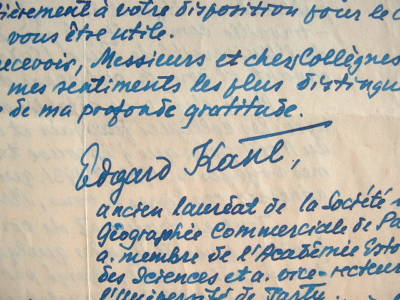 ièrement à votre disposition pour le c
vous être utile.
recevoir, Messieurs et chers Collègues
mes sentiments les plus distingu
de ma profonde gratitude.
Édgard Kant,
ancien lauréat de la Société
Géographie Commerciale de Pa
a. membre de l'Académie Esto
des Sciences et a. vice-recteur
l'Université de Tartu